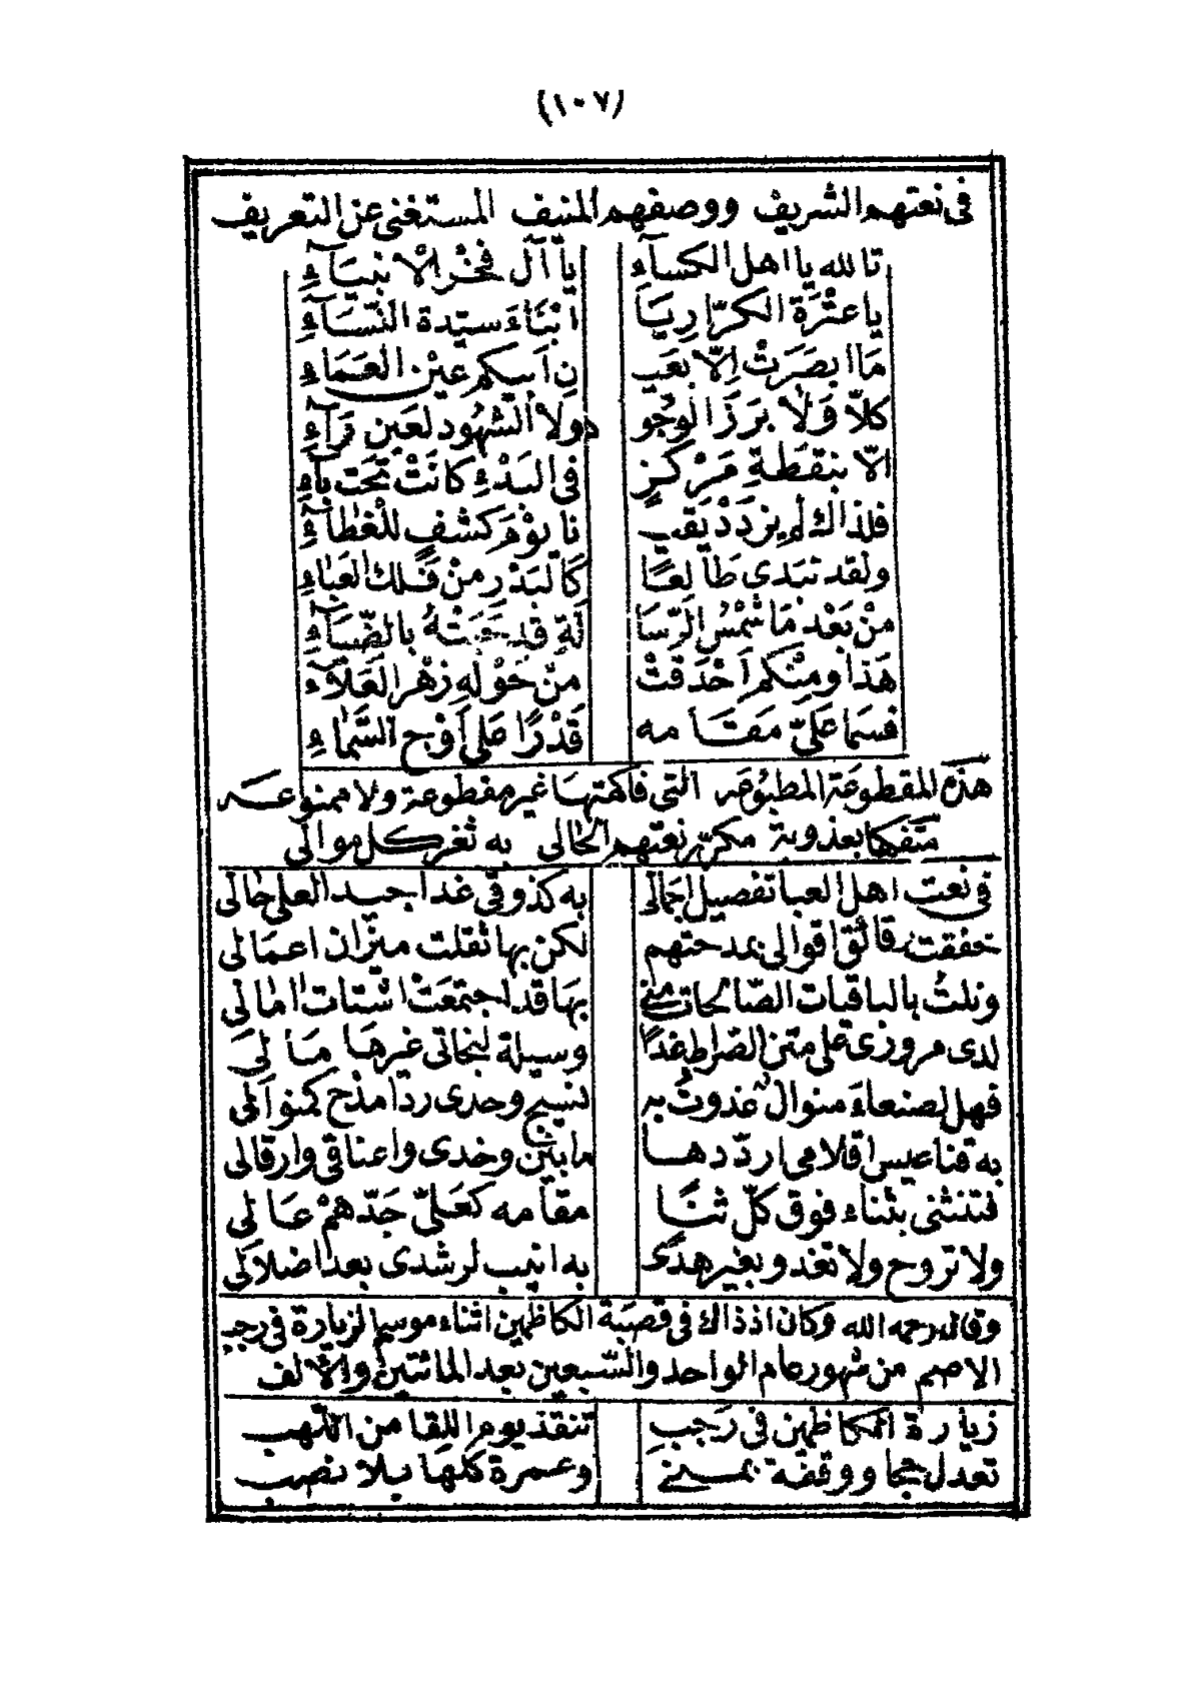 (١٠٧)
فى نعتهم الشريف ووصفهم المنيف المستغنى عن التعريف
تالله يا اهل الكسآءِ يآ آل فخْر الْانبيآءِ
يا عتْرَة الكرّار يَا ابْنَاءَ سيّدة النّسَآءِ
مَا ابصَرَتْ الّا بعَيـ نِ اسكم عيْن العَمَاءِ
كلّا وَلا بَرَزَ الوُجُو دولا الشهُود لعَين رَآءِ
الّا بنقطةِ مَرْكزٍ فى البَدْءِ كانَتْ تَحت بآءِ
فلذاك لم يزدَدْ يَقيـ نا يوْمَ كشفٍ للْغطآءِ
ولقد تبَدى طَالعًا كَالبَدْرِ منْ فَلك العَبَاءِ
منْ بَعْد مَا شمْسُ الرّسَا لَةِ قد حَبَتْهُ بالضّيَآءِ
هَذا ومنْكم احْدَقتْ منْ حَوْلهِ زهْر العَلَآءِ
فسَما عَليّ مَقَامه قَدْرًا عَلى اوْج السّمَاءِ
هذه المقطوعة المطبُوعه التى فاكهتهَا غير مقطوعة ولا ممنوعه
متفكها بعذوبة مكرّر نعتهم الحالى به ثغر كل موالى
فى نعت اهل العبا تفصيل اجمالى به كذوقى غدا جيد العلى حالى
خففت رقائق اقوالى بمدحتهم لكن بها ثقلت ميزان اعمَالى
ونلتُ بالباقيات الصّالحات منى بهَا قد اجتمعَتْ اشتات امَالى
لدى مرورى على متن الصّراط غدًا وسيلة لنجاتى غيرهَا مَا لى
فهل لصنعاءَ منوال غدوتُ به نسيج وحدى ردا مدْح كمنوالى
به قناعيس اقلامى ارددها ما بيْن وخدى واعناقى وارقالى
فتنثنى بثناء فوق كلّ ثنًا مقامه كعَلىّ جَدّهمْ عَالى
ولا تروح ولا تغدو بغير هدًى به انيب لرشدى بعد اضلالى
وقال رحمه الله وكان اذ ذاك فى قصبَة الكاظمين اثناء موسم الزيارة فى رجب
الاصم من شهور عام الواحد والسّبعين بعد المائتين والالف
زيارة الكاظمين فى رَجبِ تنقذ يوم اللقا من اللّهب
تعدل حجا ووقفة بمنى وعمرة كلها بلا نصب